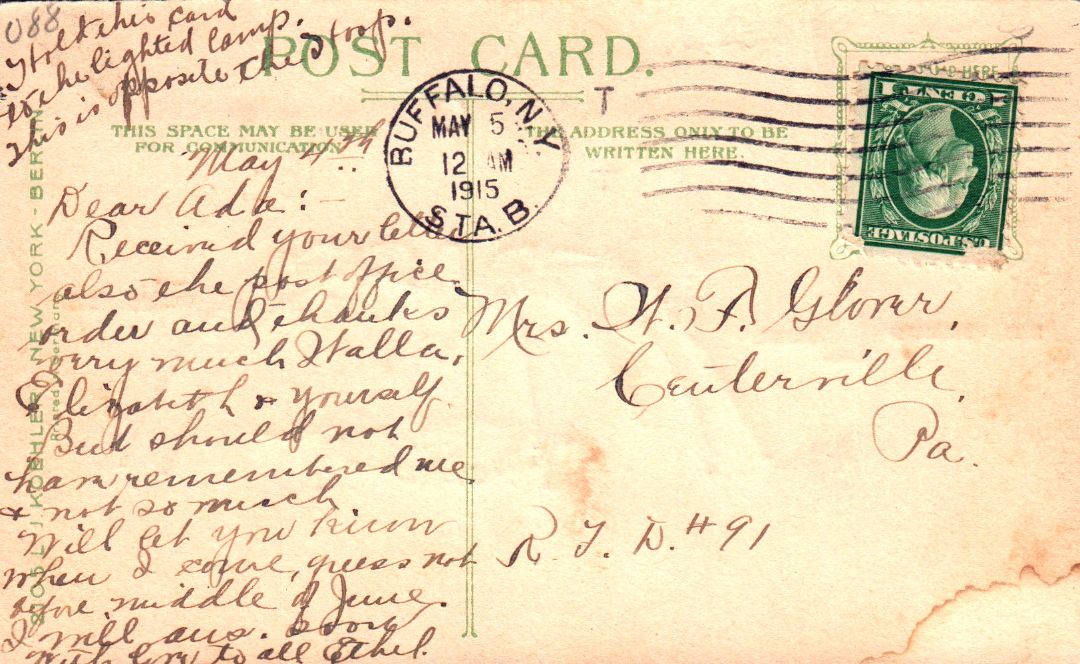 088
Hold this card
to the lighted lamp.
This is opposite the stoop.
POST CARD.
THIS SPACE MAY BE USED
FOR COMMUNICATION
THE ADDRESS ONLY TO BE
WRITTEN HERE.
BUFFALO, N.Y.
MAY 5
12 AM
1915
STA. B.
T
1 CENT 1
U.S. POSTAGE
HERE
May 4th
Dear Ada:-
Received your letter
also the post office
order and thanks
very much Walla,
Elizabeth & yourself.
But should not
have remembered me
& not so much
Will let you know
when I come, guess not
before middle of June.
I will ans. soon
With love to all Ethel.
Mrs. W. F. Glover,
Centerville,
Pa.
R. F. D. # 91
J. KOEHLER, NEW YORK - BERLIN